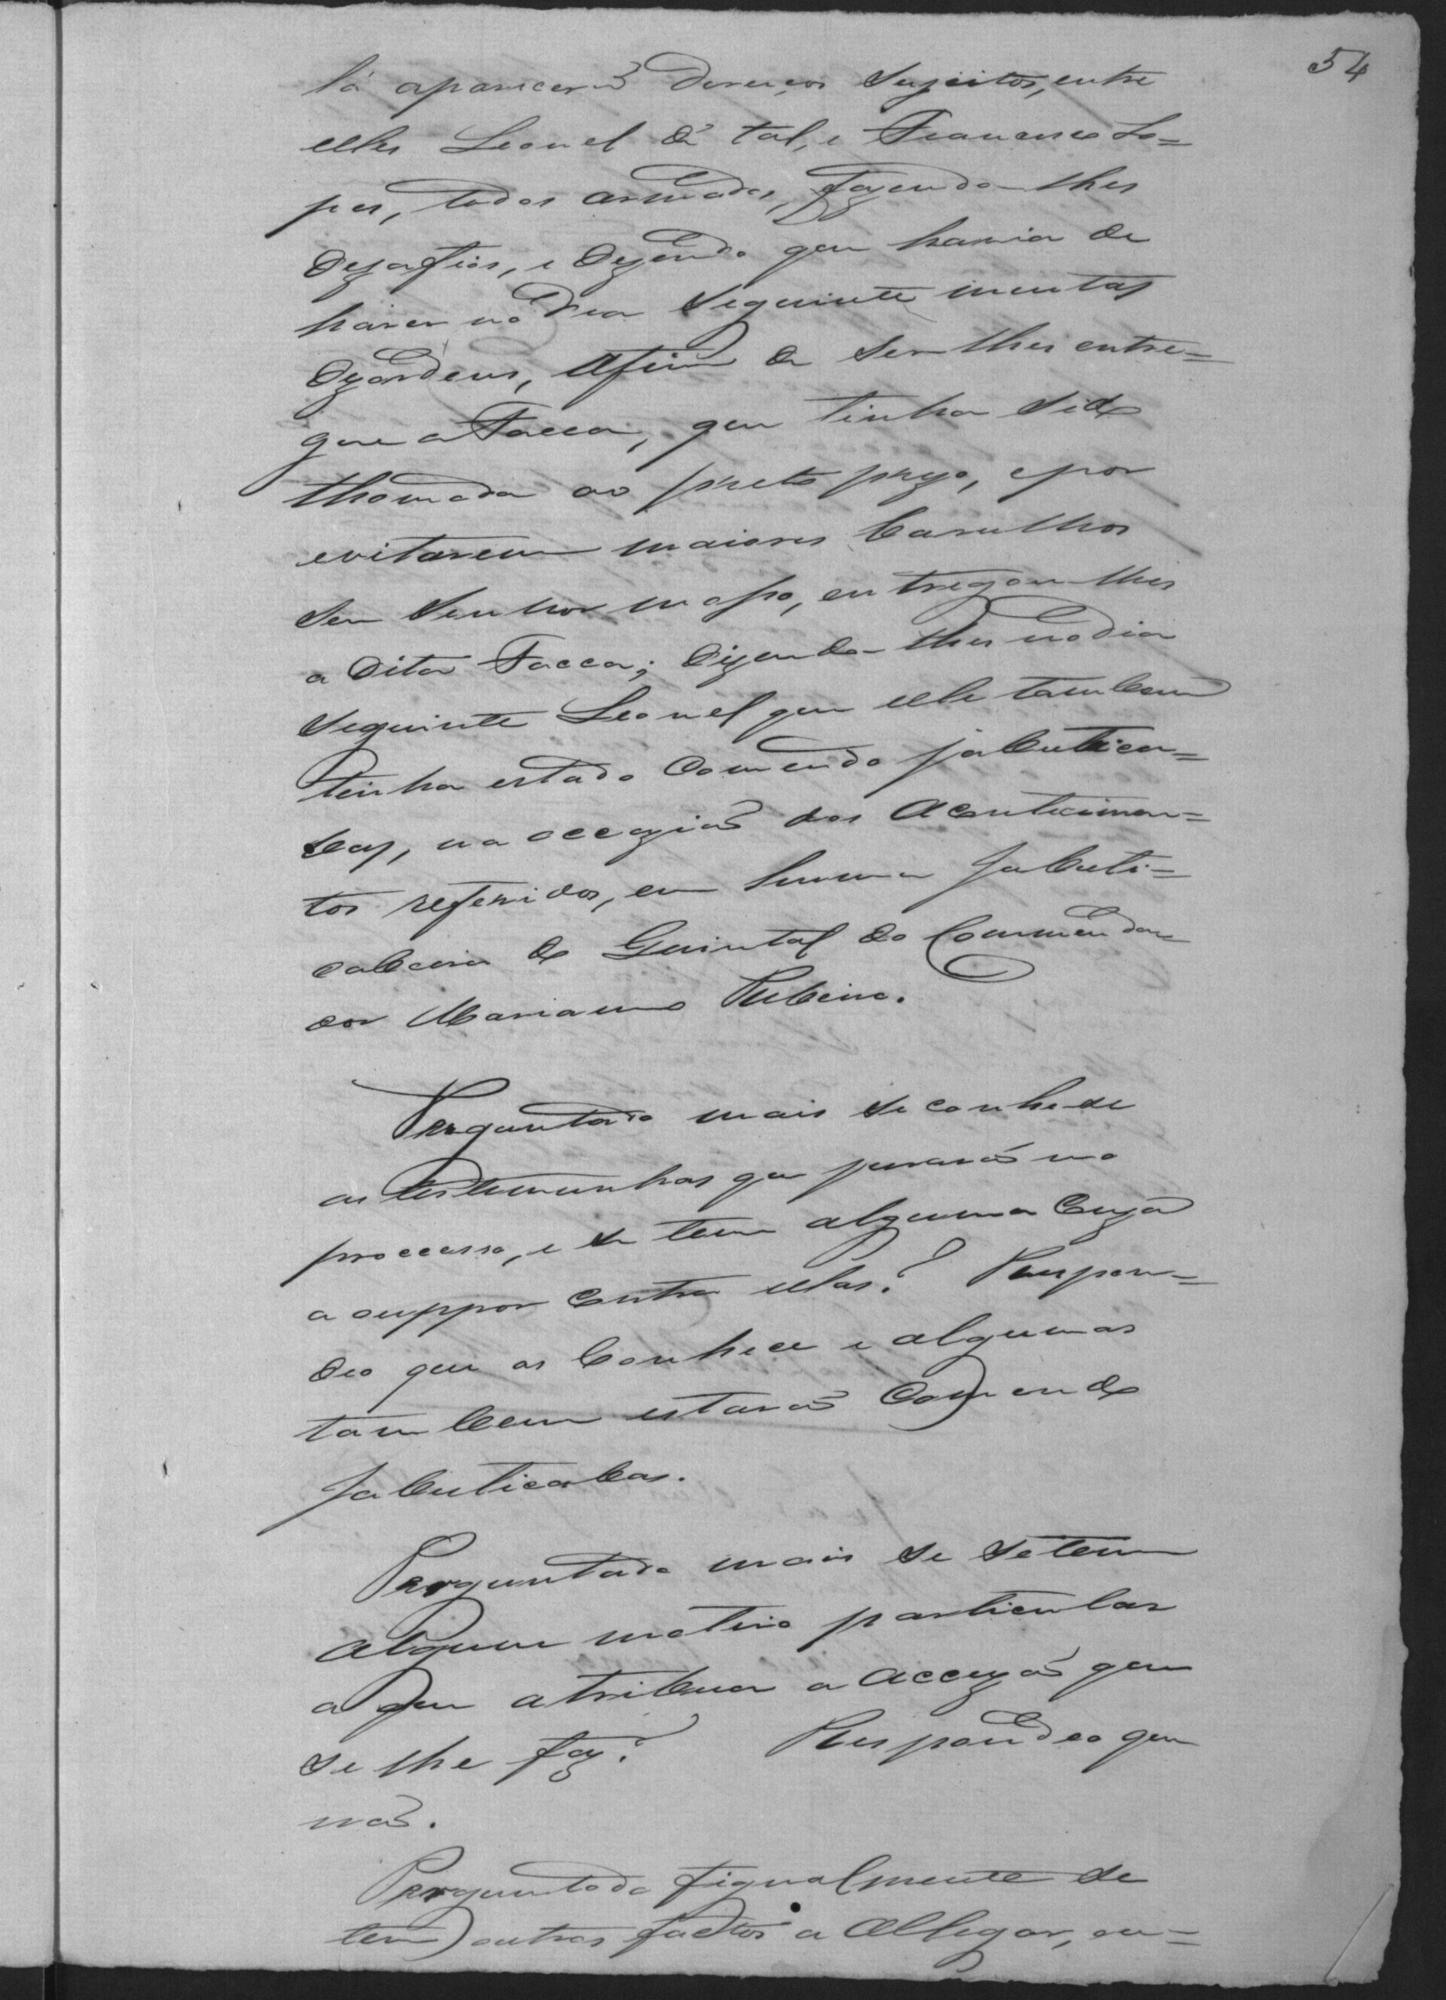 54
lá aparicerão dereços Sugeitos, entre
elles Leonel de tal, e Francisco Lo=
pes, todos armados, fazendo-lhes
dezafios, e dizendo que havia de
haver no dia seguinte muntas
dezordens, afim de ser lhes entre=
gue a Facca, que tinha sido
thomada ao preto prezo, e por
evitarem maiores barulhos
seu Senhor mosso, entregou lhes
a dita Facca; dizendo-lhes no dia
seguinte Leonel que elle tambem
tinha estado comendo jabutica=
bas, na occazião dos acontecimen=
tos referidos, em huma jabuti=
cabeira do Quintal do Commenda
dor Marianno Ribeiro.
Perguntado mais se conhece
as testemunhas que jurarão no
processo, e se tem alguma couza
a suppor contra ellas? Respon=
deo que as conhece e algumas
tambem estavão comendo
jabuticabas.
Perguntado mais se se tem
algum motivo particular
a que atribua a accuzão que
se lhe faz? Respondeo que
não.
Perguntado figualmente se
tem outros factos a allegar, ou=